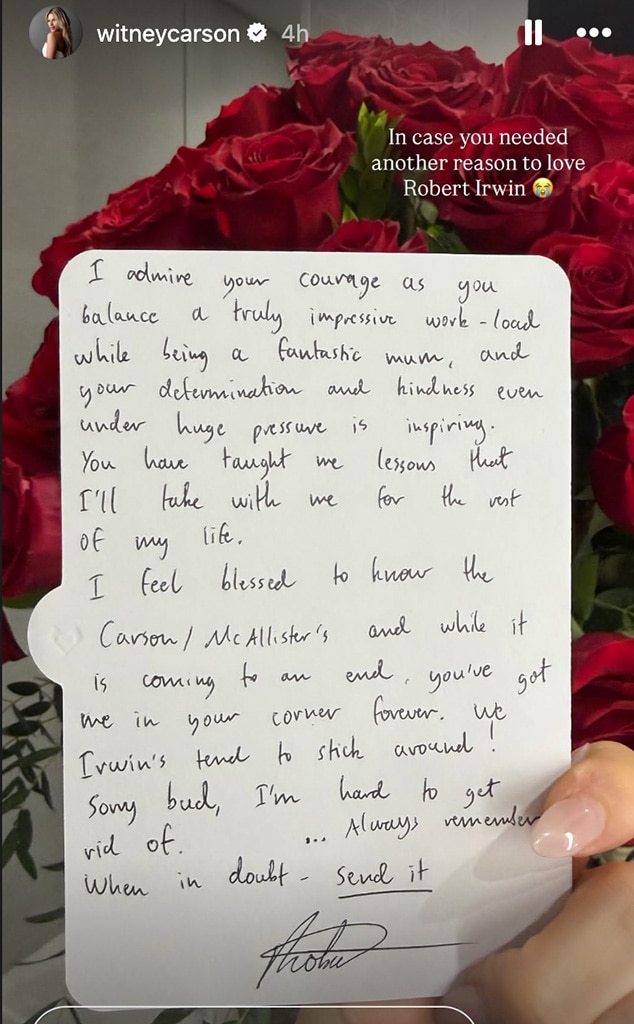 witneycarson 4h
In case you needed
another reason to love
Robert Irwin 😭
I admire your courage as you
balance a truly impressive work-load
while being a fantastic mum, and
your determination and kindness even
under huge pressure is inspiring.
You have taught me lessons that
I'll take with me for the rest
of my life.
I feel blessed to know the
Carson/McAllister's and while it
is coming to an end, you've got
me in your corner forever. We
Irwin's tend to stick around!
Sorry bud, I'm hard to get
rid of. ... Always remember
When in doubt - send it